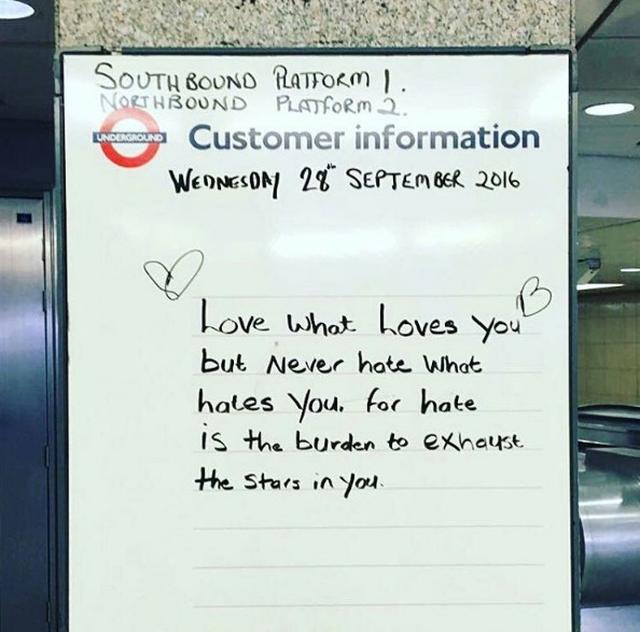 SOUTHBOUND PLATFORM 1.
NORTHBOUND PLATFORM 2.
UNDERGROUND Customer information
WEDNESDAY 28th SEPTEMBER 2016
Love what Loves you
but Never hate what
hates you. for hate
is the burden to exhaust
the stars in you.